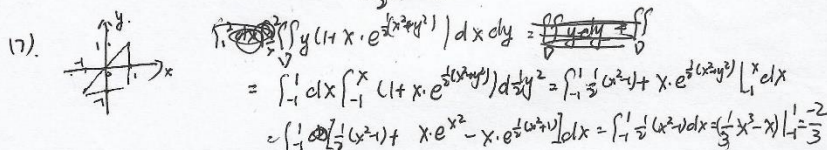 17).
y
1
-1
1
x
-1
∬_D y(1+x·e^{½(x²+y²)})dxdy =
= ∫_{-1}^{1} dx ∫_{-1}^{x} (1+x·e^{½(x²+y²)})d½y² = ∫_{-1}^{1} ½(x²-1)+x·e^{½(x²+y²)}|_{1}^{x} dx
= ∫_{-1}^{1} [½(x²-1)+ x·e^{x²} - x·e^{½(x²+1)}]dx = ∫_{-1}^{1} ½(x²-1)dx = (⅓x³-x)|_{-1}^{1} = -2/3